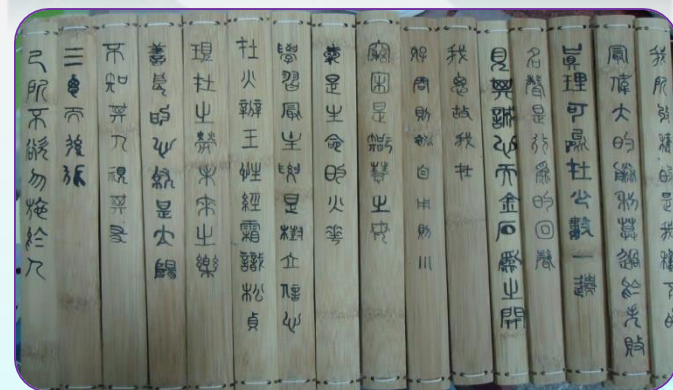 我所收穫的是我種下的
偉大的
真理可在少數一邊
名聲是行為的回聲
見其誠心而金石為之開
我思故我在
好問則裕自用則小
窮困是智慧之母
愛是生命的火花
學習是樹立信心
在火辨玉性經霜識松貞
現在之勞未來之樂
善良的心就是太陽
不知其人視其友
三思而後行
己所不欲勿施於人